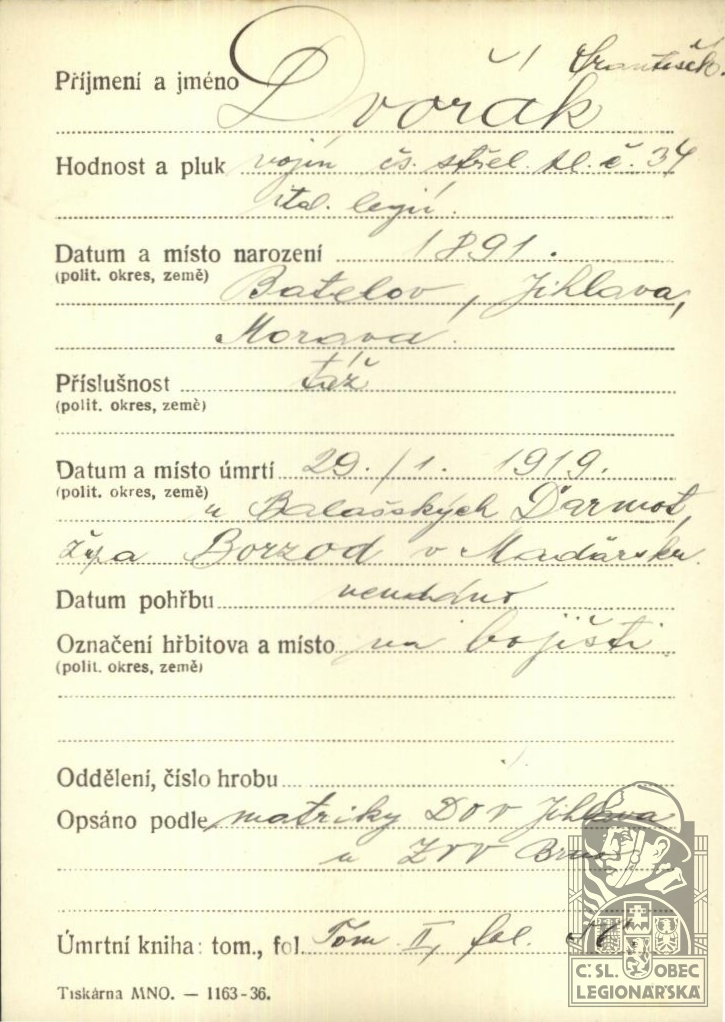 Příjmení a jméno Dvořák František.
Hodnost a pluk vojín čs. střel. pl. č. 34
ital. legií.
Datum a místo narození 1891.
(polit. okres, země) Batelov, Jihlava,
Morava.
Příslušnost táž
(polit. okres, země)
Datum a místo úmrtí 29./1. 1919.
(polit. okres, země) u Balašských Ďarmot,
župa Borzod v Maďarsku.
Datum pohřbu neudáno
Označení hřbitova a místo na bojišti.
(polit. okres, země)
Oddělení, číslo hrobu
Opsáno podle matriky DOV Jihlava
u ZVV Brno
Úmrtní kniha: tom., fol. Tom. II, fol.
Tiskárna MNO. — 1163-36.
Č.SL. OBEC
LEGIONÁŘSKÁ